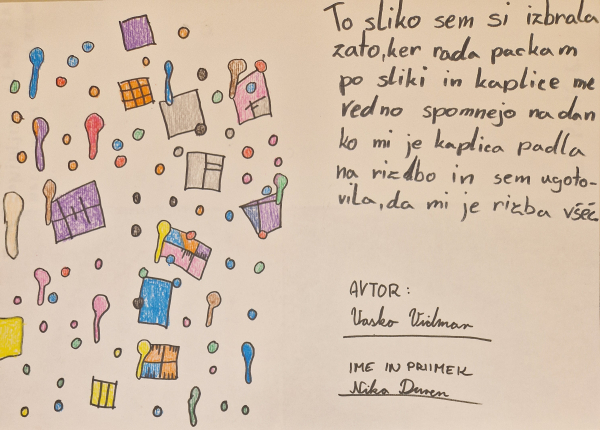 To sliko sem si izbrala
zato, ker rada packam
po sliki in kaplice me
vedno spomnejo na dan
ko mi je kaplica padla
na rizbo in sem ugoto-
vila, da mi je rizba všeč
AVTOR:
Vasko
IME IN PRIIMEK
Nika